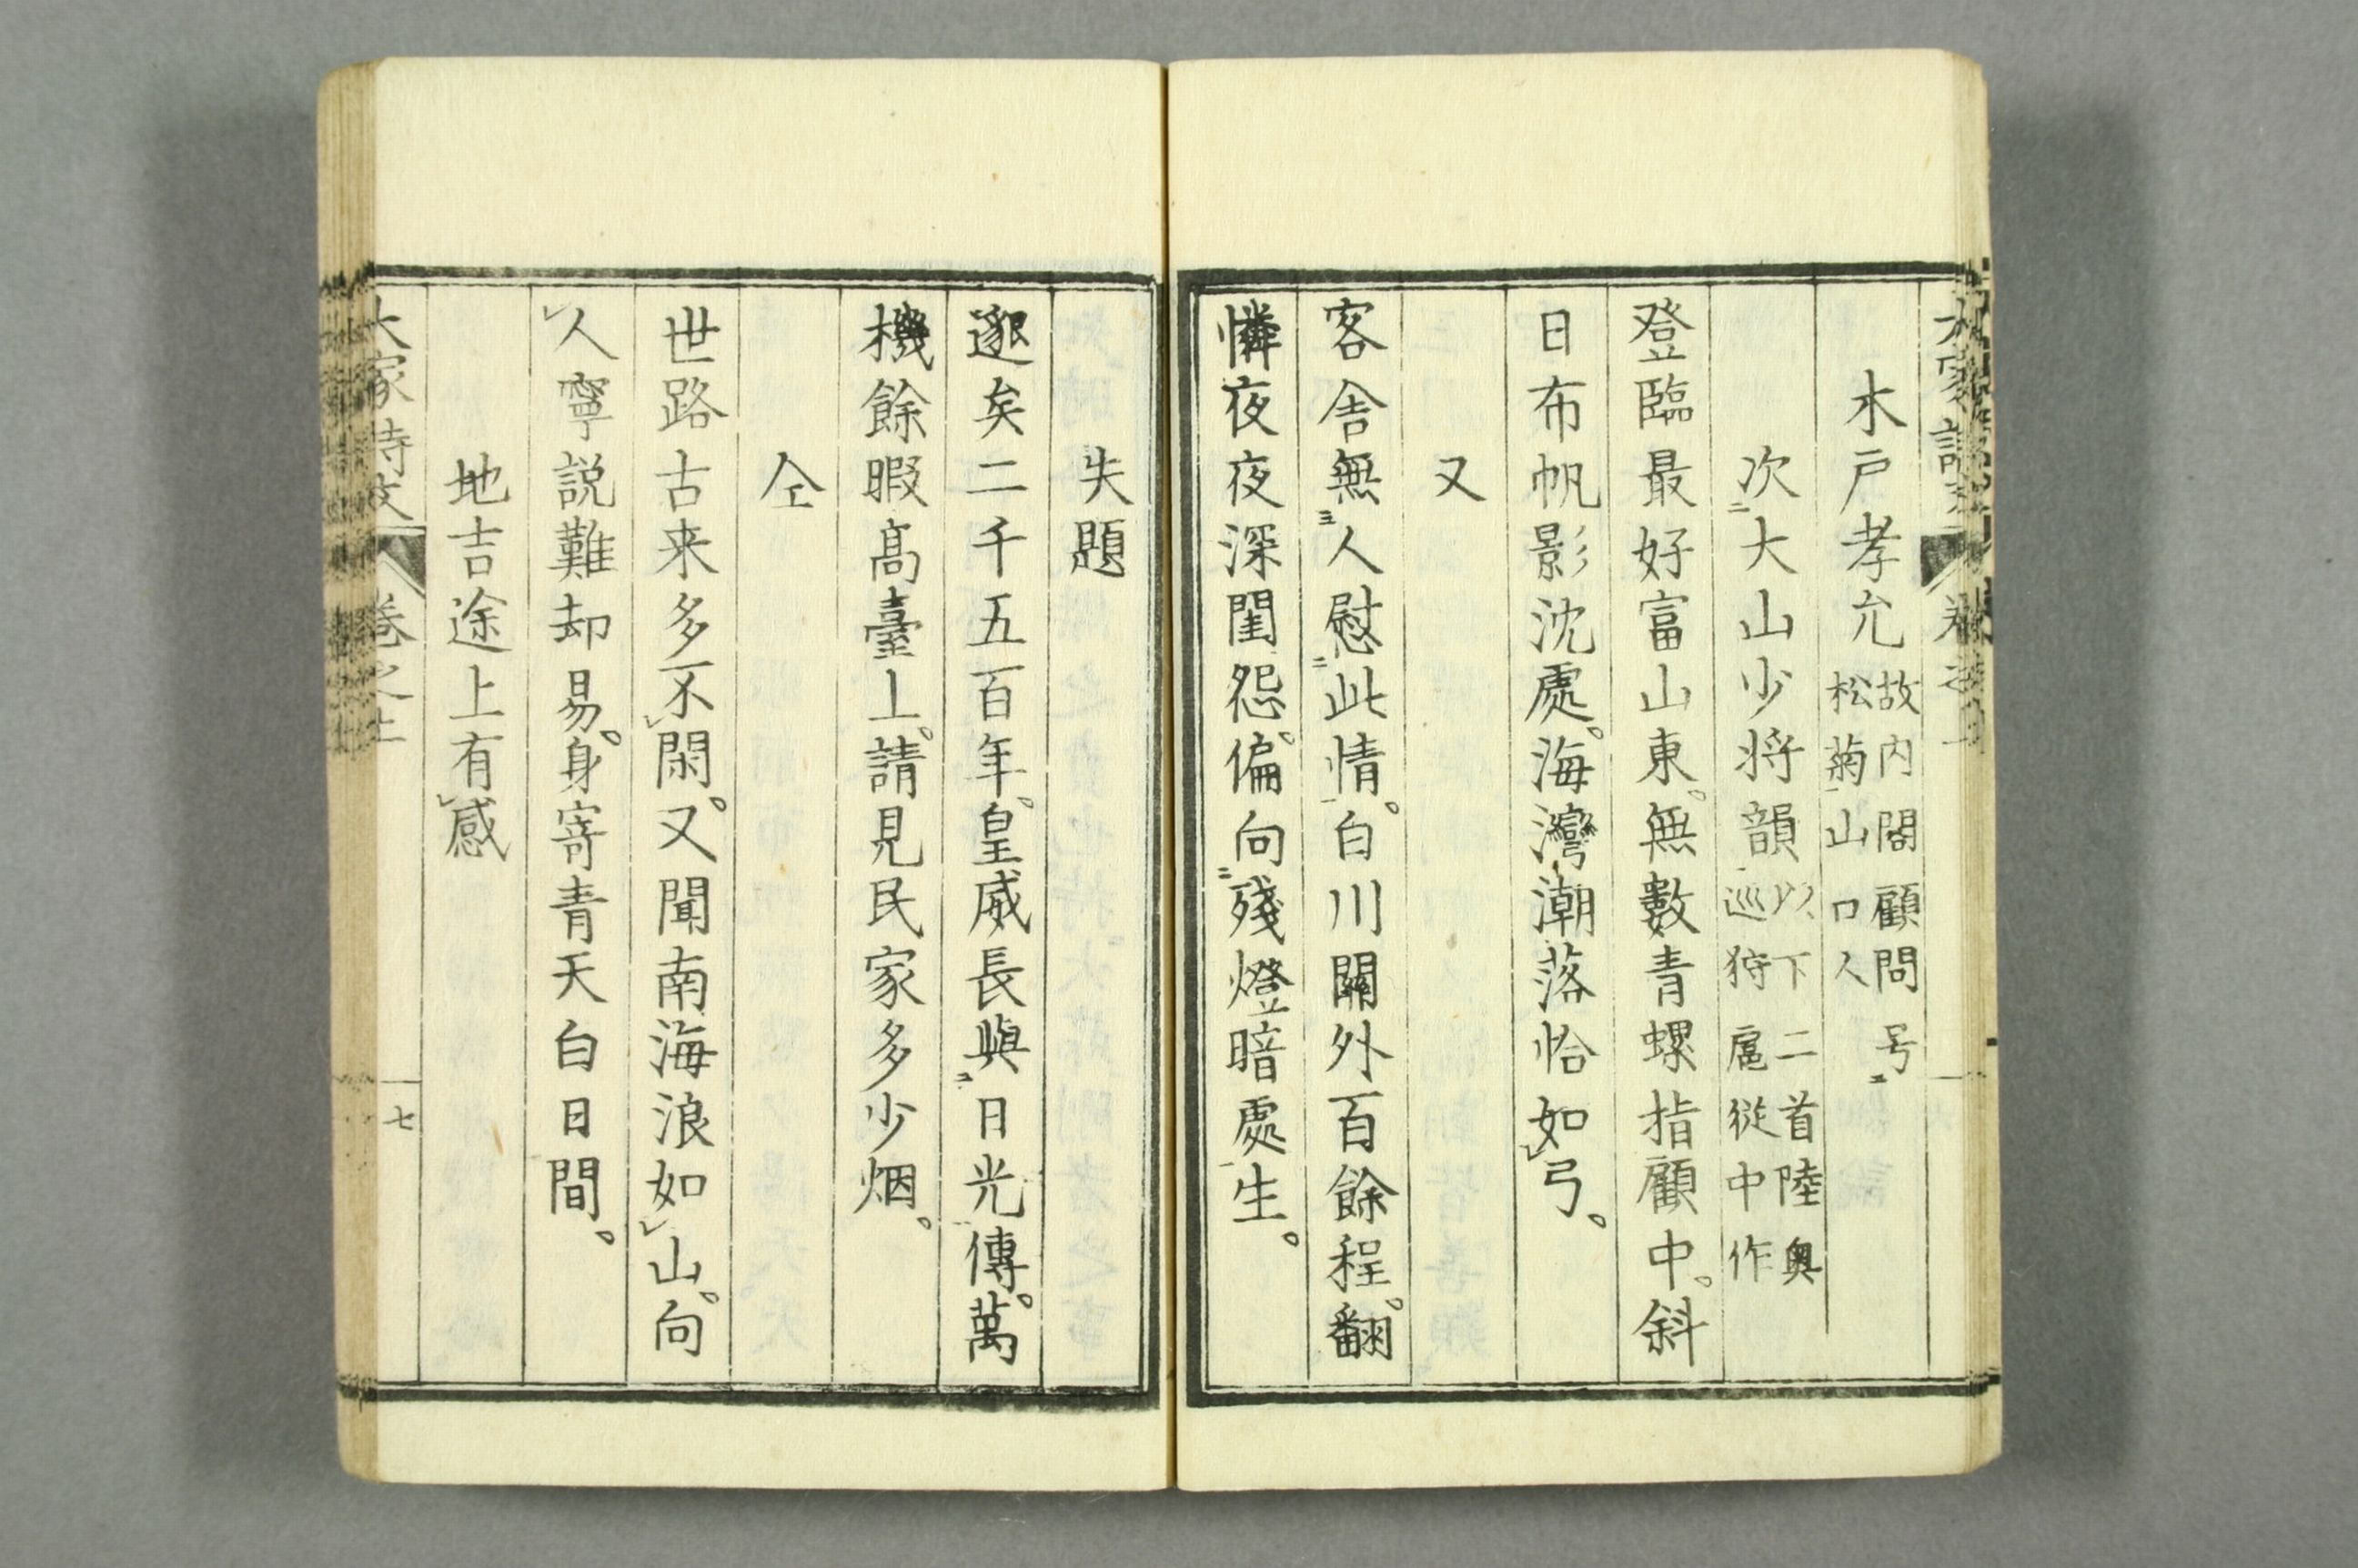 木戸孝允 故内閣顧問号
松菊山口人
次二大山少将韻一 以下二首陸奥
巡狩扈從中作
登臨最好富山東。無數青螺指顧中。斜
日布帆影沈處。海灣潮落恰如レ弓。
又
客舎無三人慰二此情一。白川關外百餘程。翻
憐夜夜深閨怨。偏向二殘燈暗處一生。
失題
邈矣二千五百年。皇威長與二日光一傳。萬
機餘暇高臺上。請見民家多少烟。
仝
世路古来多不レ閑。又聞南海浪如レ山。向
レ人寧説難却易。身寄青天白日間。
地吉途上有レ感
大家詩文 卷之上
十七